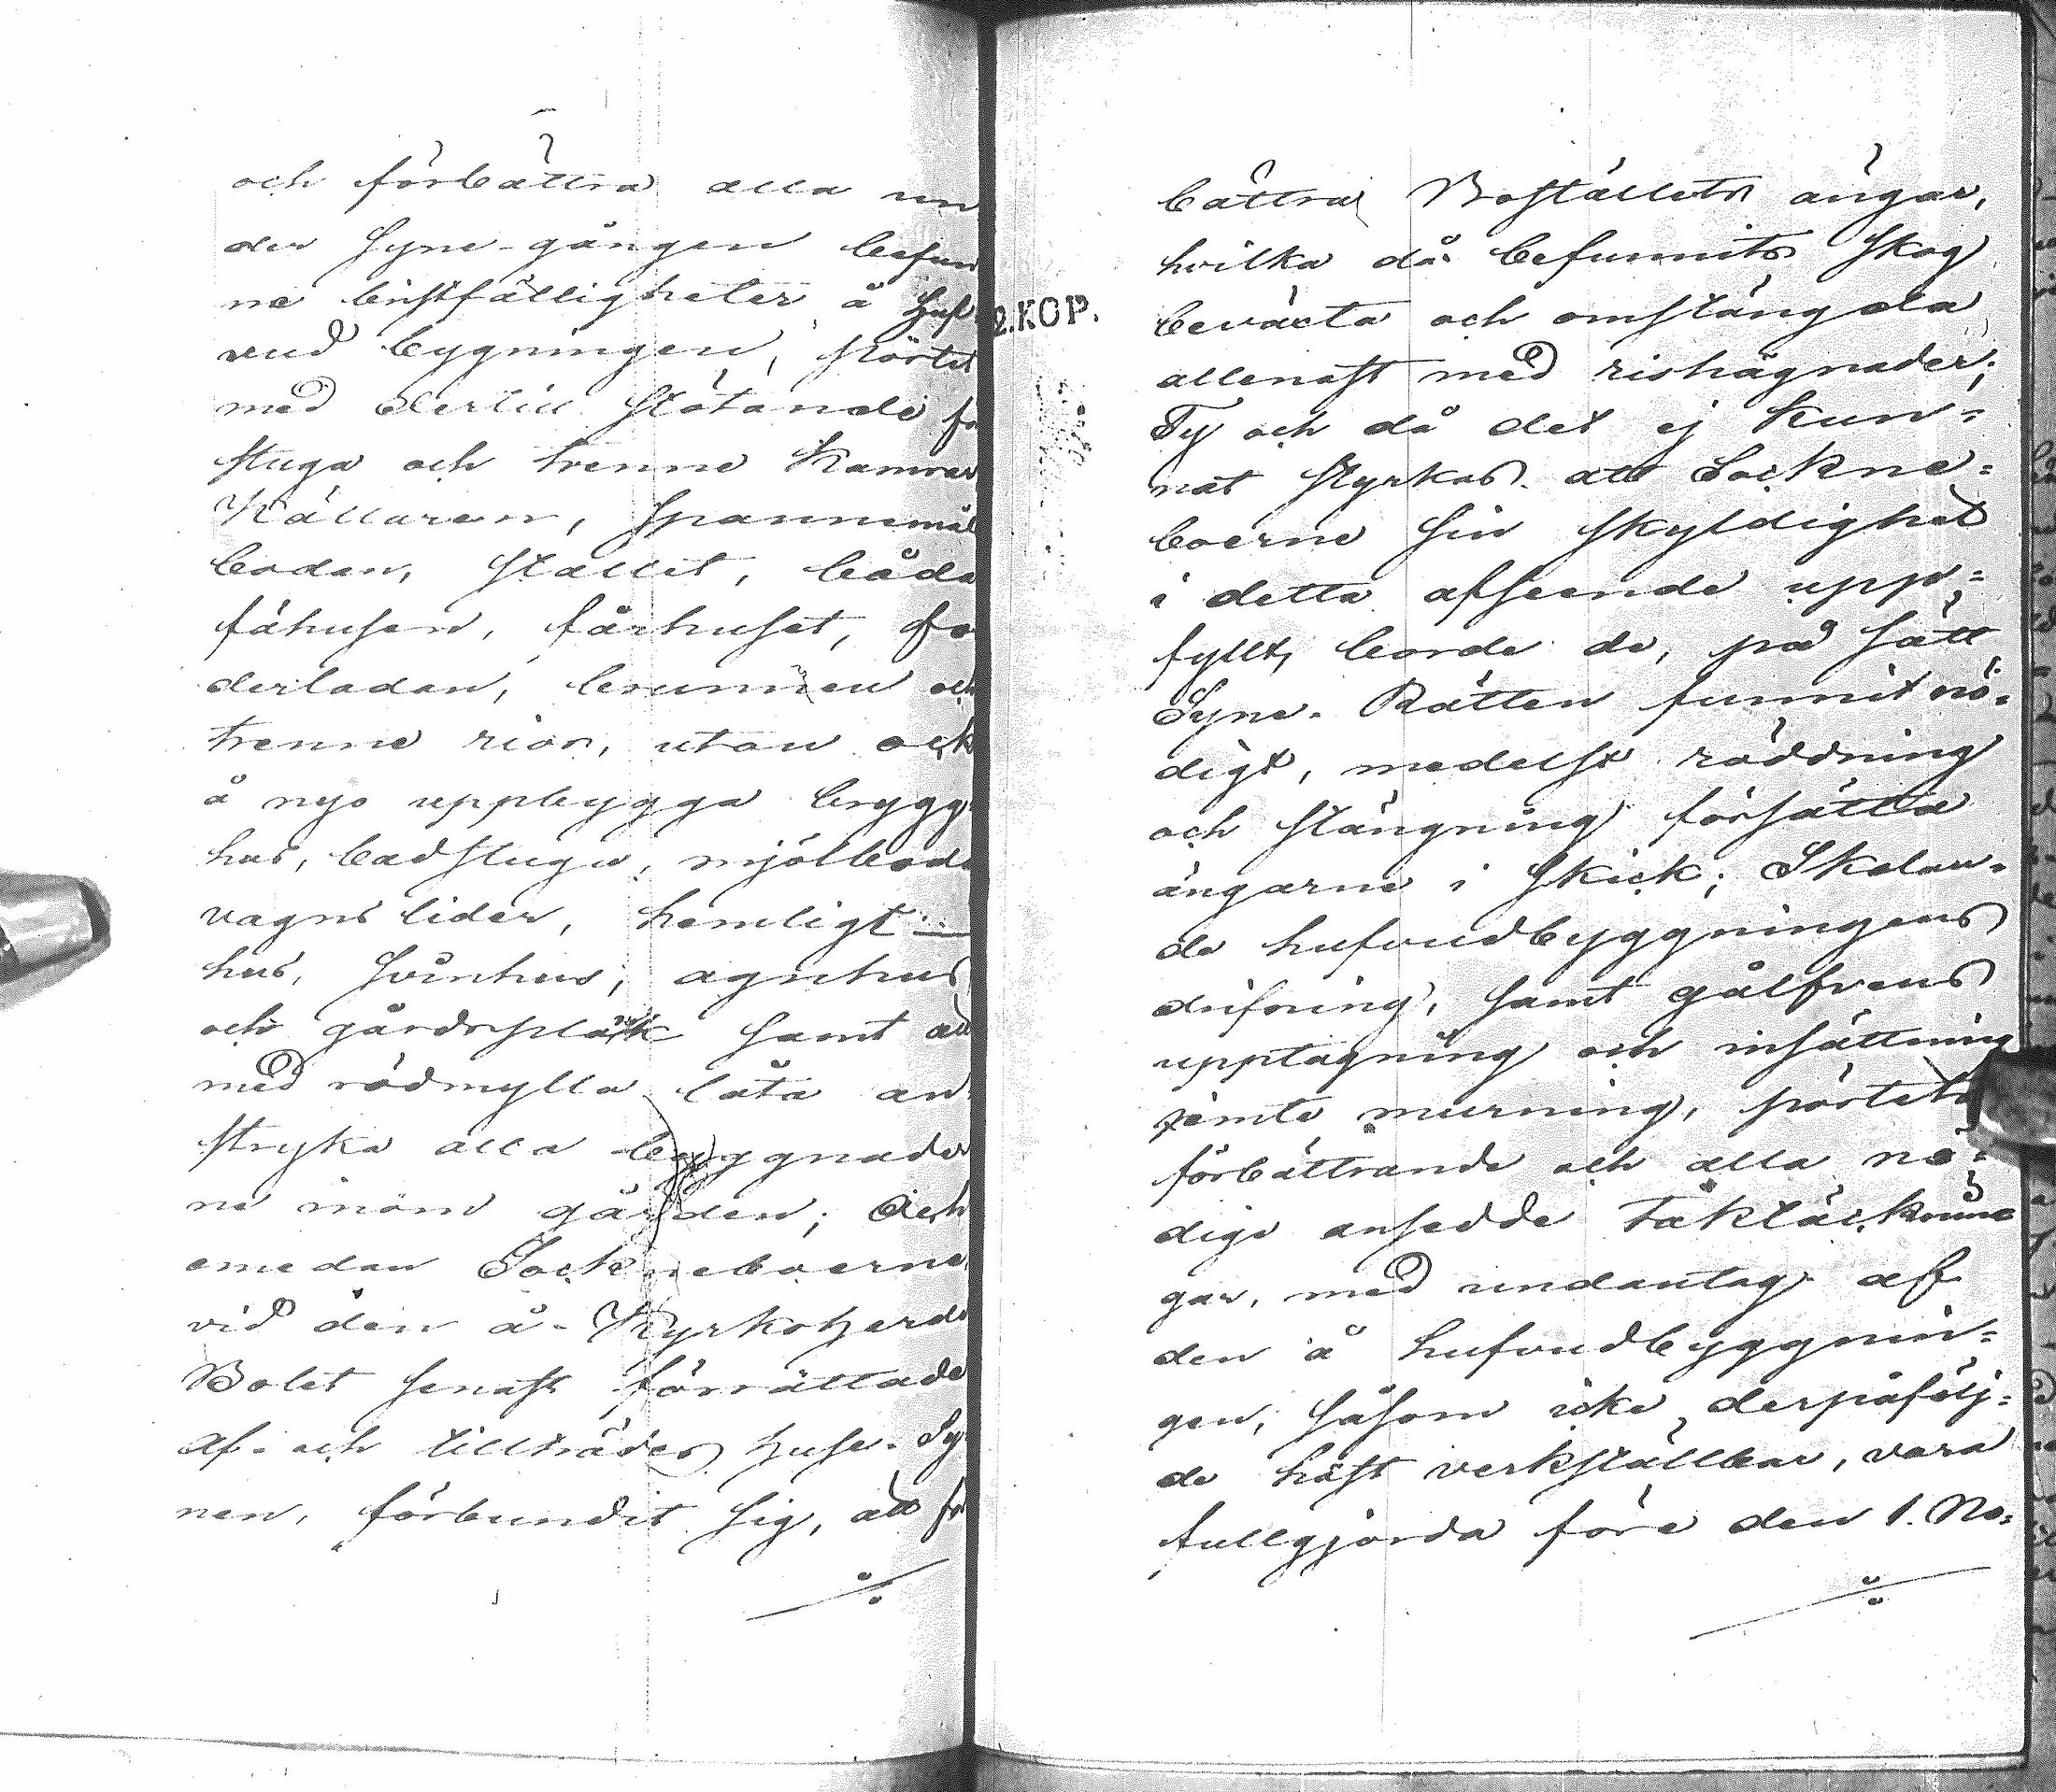 och förbättra alla un
der Syne-gången befun
ne bristfälligheter å huf
vud bygningen, pörtet
med dertill stötande fo
stuga och trenne Kamrar
Källaren, Spannemåls
bodan, stallet, båda
fähusen, fårhuset, fo
derladan, brunnen och
trenne rior, utan ock
å nyo uppbygga brygg
hus, badstugu, mjölboda
vagns lider, hemligt
hus, svinhus, agnhus
och gårdsplank samt att
med rödmylla låta an
stryka alla byggnader
ne inom gården; Och
emedan Sockneboerne
vid den å Kyrkoherde
Bolet senast förrättade
af- och tillträdes huse-Sy
nen, förbundit sig, att för
2.KOP.
bättra Boställets ängar,
hvilka då befunnits skog
beväxta och omstängda
allenast med rishägnader;
Ty och då det ej kun=
nat styrkas att Sockne=
boerne sin skyldighet
i detta afseende upp=
fyllt, borde de, på sätt
Syne-Rätten funnit nö=
digt, medelst röddning
och stängning försätta
ängarne i skick; Skolan=
de hufvudbyggningens
drifning, samt gålfvens
upptagning och insättning
jemte murning, pörtets
förbättrande och alla nö=
dige ansedde taktäcknin
gar, med undantag af
den å hufvudbyggnin=
gen, såsom icke derpåfölj=
de höst verkställbar, vara
fullgjorda före den 1. No=